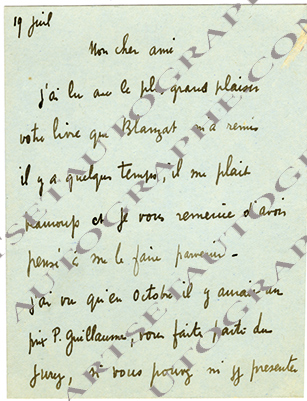 19 Juil
Mon cher ami
j'ai lu avec le plus grand plaisir
votre livre que Blanzat m'a remis
il y a quelque temps, il me plait
beaucoup et je vous remercie d'avoir
pensé à me le faire parvenir -
j'ai vu qu'en Octobre il y aurait un
prix P. Guillaume, vous faites parti du
Jury, si vous pouvez m'y presenter
ARTSETAUTOGRAPHE.COM